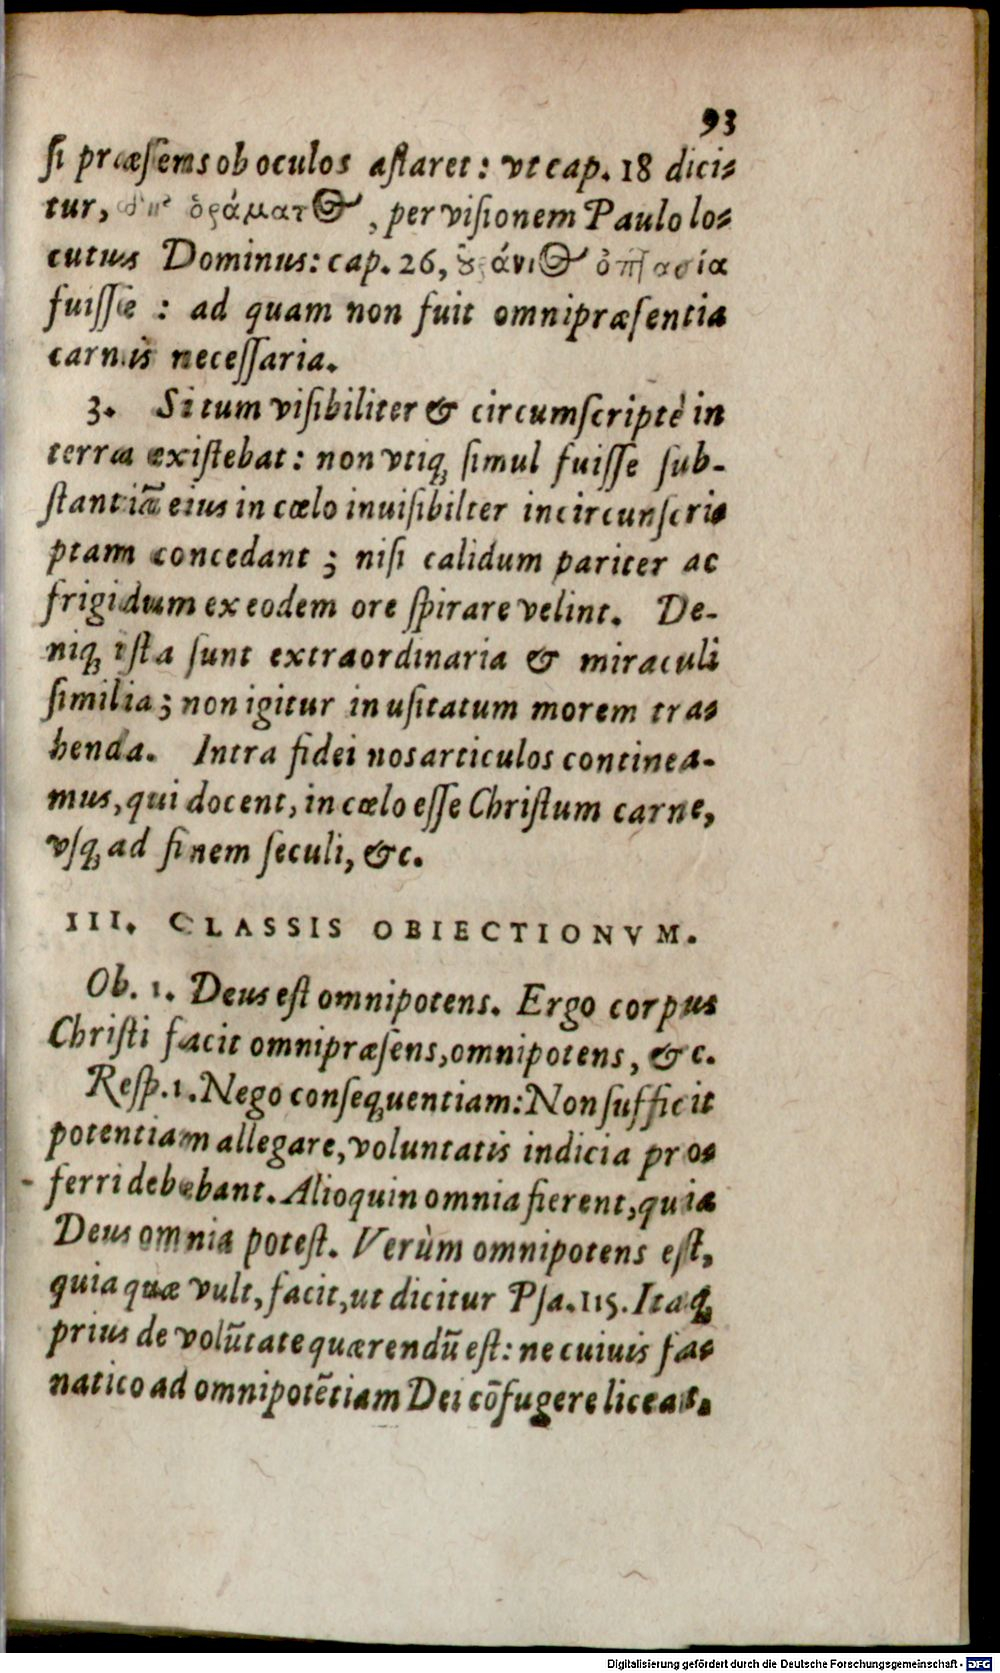 93
ſi præſens ob oculos aſtaret: vt cap. 18 dici-
tur, δι' ὁράματος, per viſionem Paulo lo-
cutus Dominus: cap. 26, οὐράνιος ὀπτασία
fuiſſe : ad quam non fuit omnipræſentia
carnis neceſſaria.
3. Si tum viſibiliter & circumſcriptè in
terra exiſtebat: non vtiq; ſimul fuiſſe ſub-
ſtantiā eius in cœlo inuiſibilter incircunſcri-
ptam concedant ; niſi calidum pariter ac
frigidum ex eodem ore ſpirare velint. De-
niq; iſta ſunt extraordinaria & miraculi
ſimilia; non igitur in uſitatum morem tra-
henda. Intra fidei nos articulos continea-
mus, qui docent, in cœlo eſſe Chriſtum carne,
vſq; ad finem ſeculi, &c.
III. CLASSIS OBIECTIONVM.
Ob. 1. Deus eſt omnipotens. Ergo corpus
Chriſti facit omnipræſens, omnipotens, &c.
Reſp. 1. Nego conſequentiam: Non ſufficit
potentiam allegare, voluntatis indicia pro-
ferri debebant. Alioquin omnia fierent, quia
Deus omnia poteſt. Verùm omnipotens eſt,
quia quæ vult, facit, ut dicitur Pſa. 115. Itaq;
prius de volūtate quærendū eſt: ne cuiuis fa-
natico ad omnipotētiam Dei cōfugere liceat.
Digitalisierung gefördert durch die Deutsche Forschungsgemeinschaft - DFG